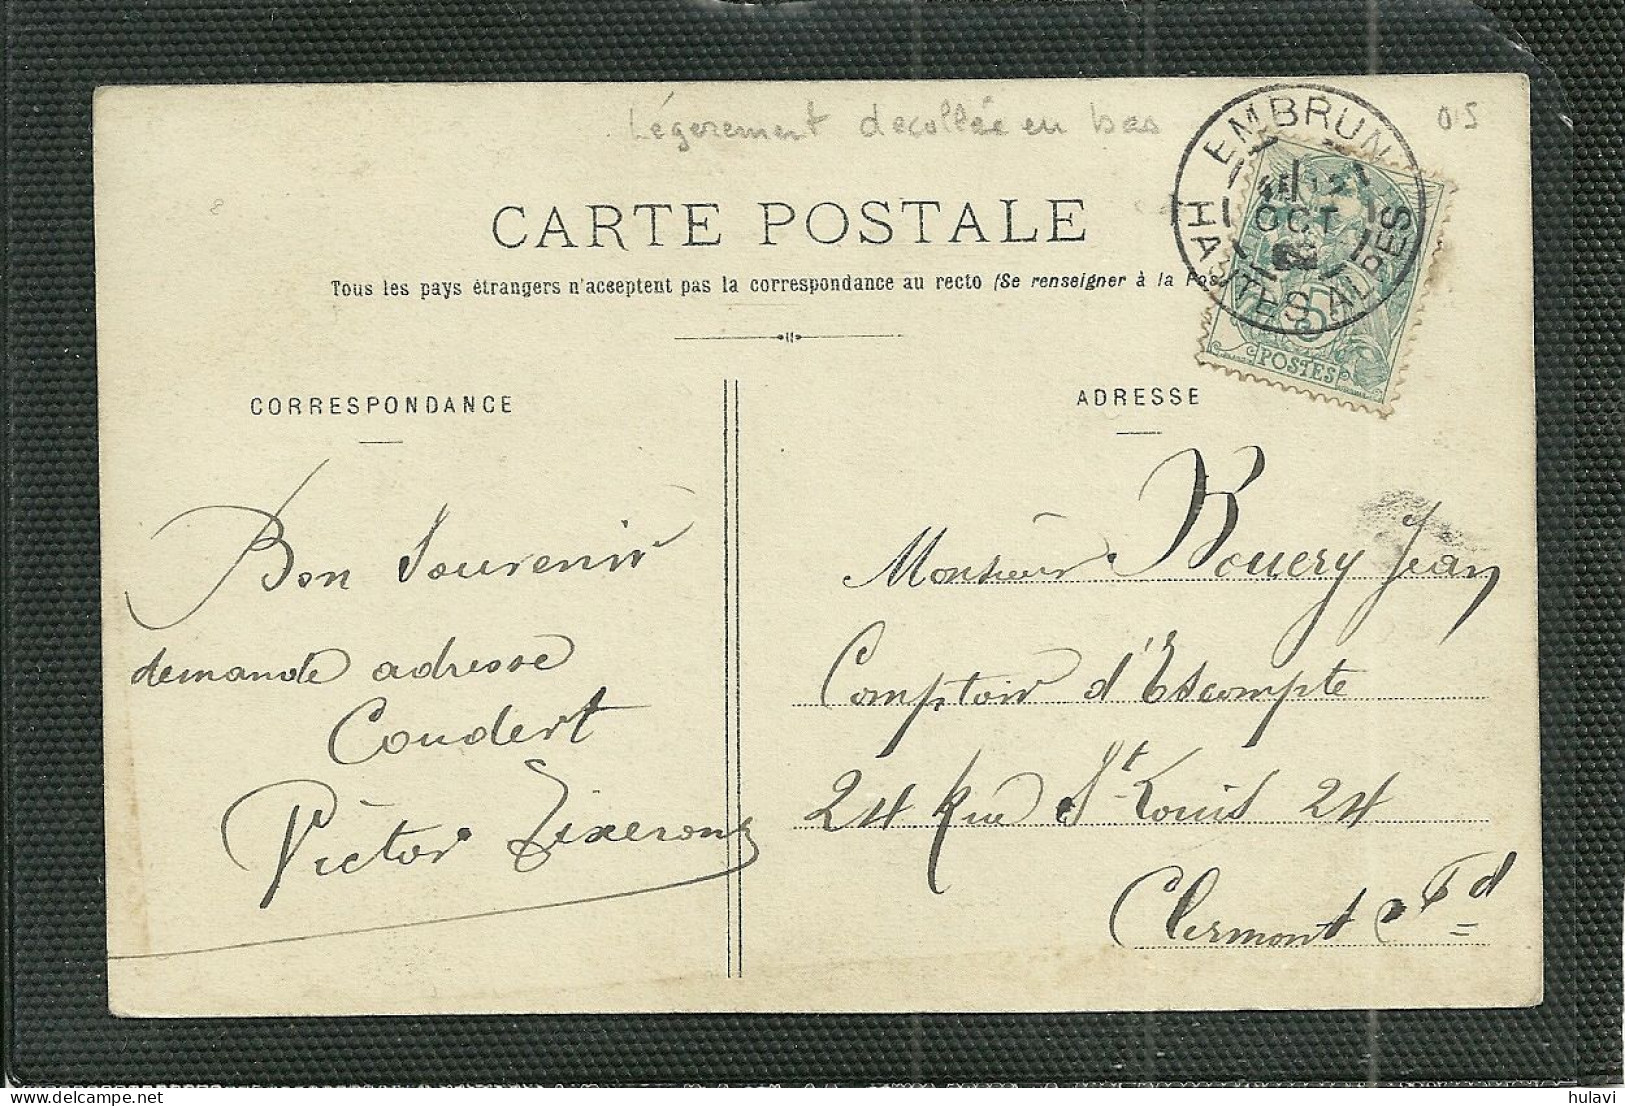 Légerement decollée en bas
05
8
CARTE POSTALE
Tous les pays étrangers n'acceptent pas la correspondance au recto (Se renseigner à la Pos
EMBRUN
12
OCT
HAUTES ALPES
5
POSTES
CORRESPONDANCE
Bon Souvenir
demande adresse
Coudert
Victor
ADRESSE
Monsieur Bouery Jean
Comptoir d'Escompte
24 Rue St Louis 24
Clermont Fd
hulavi